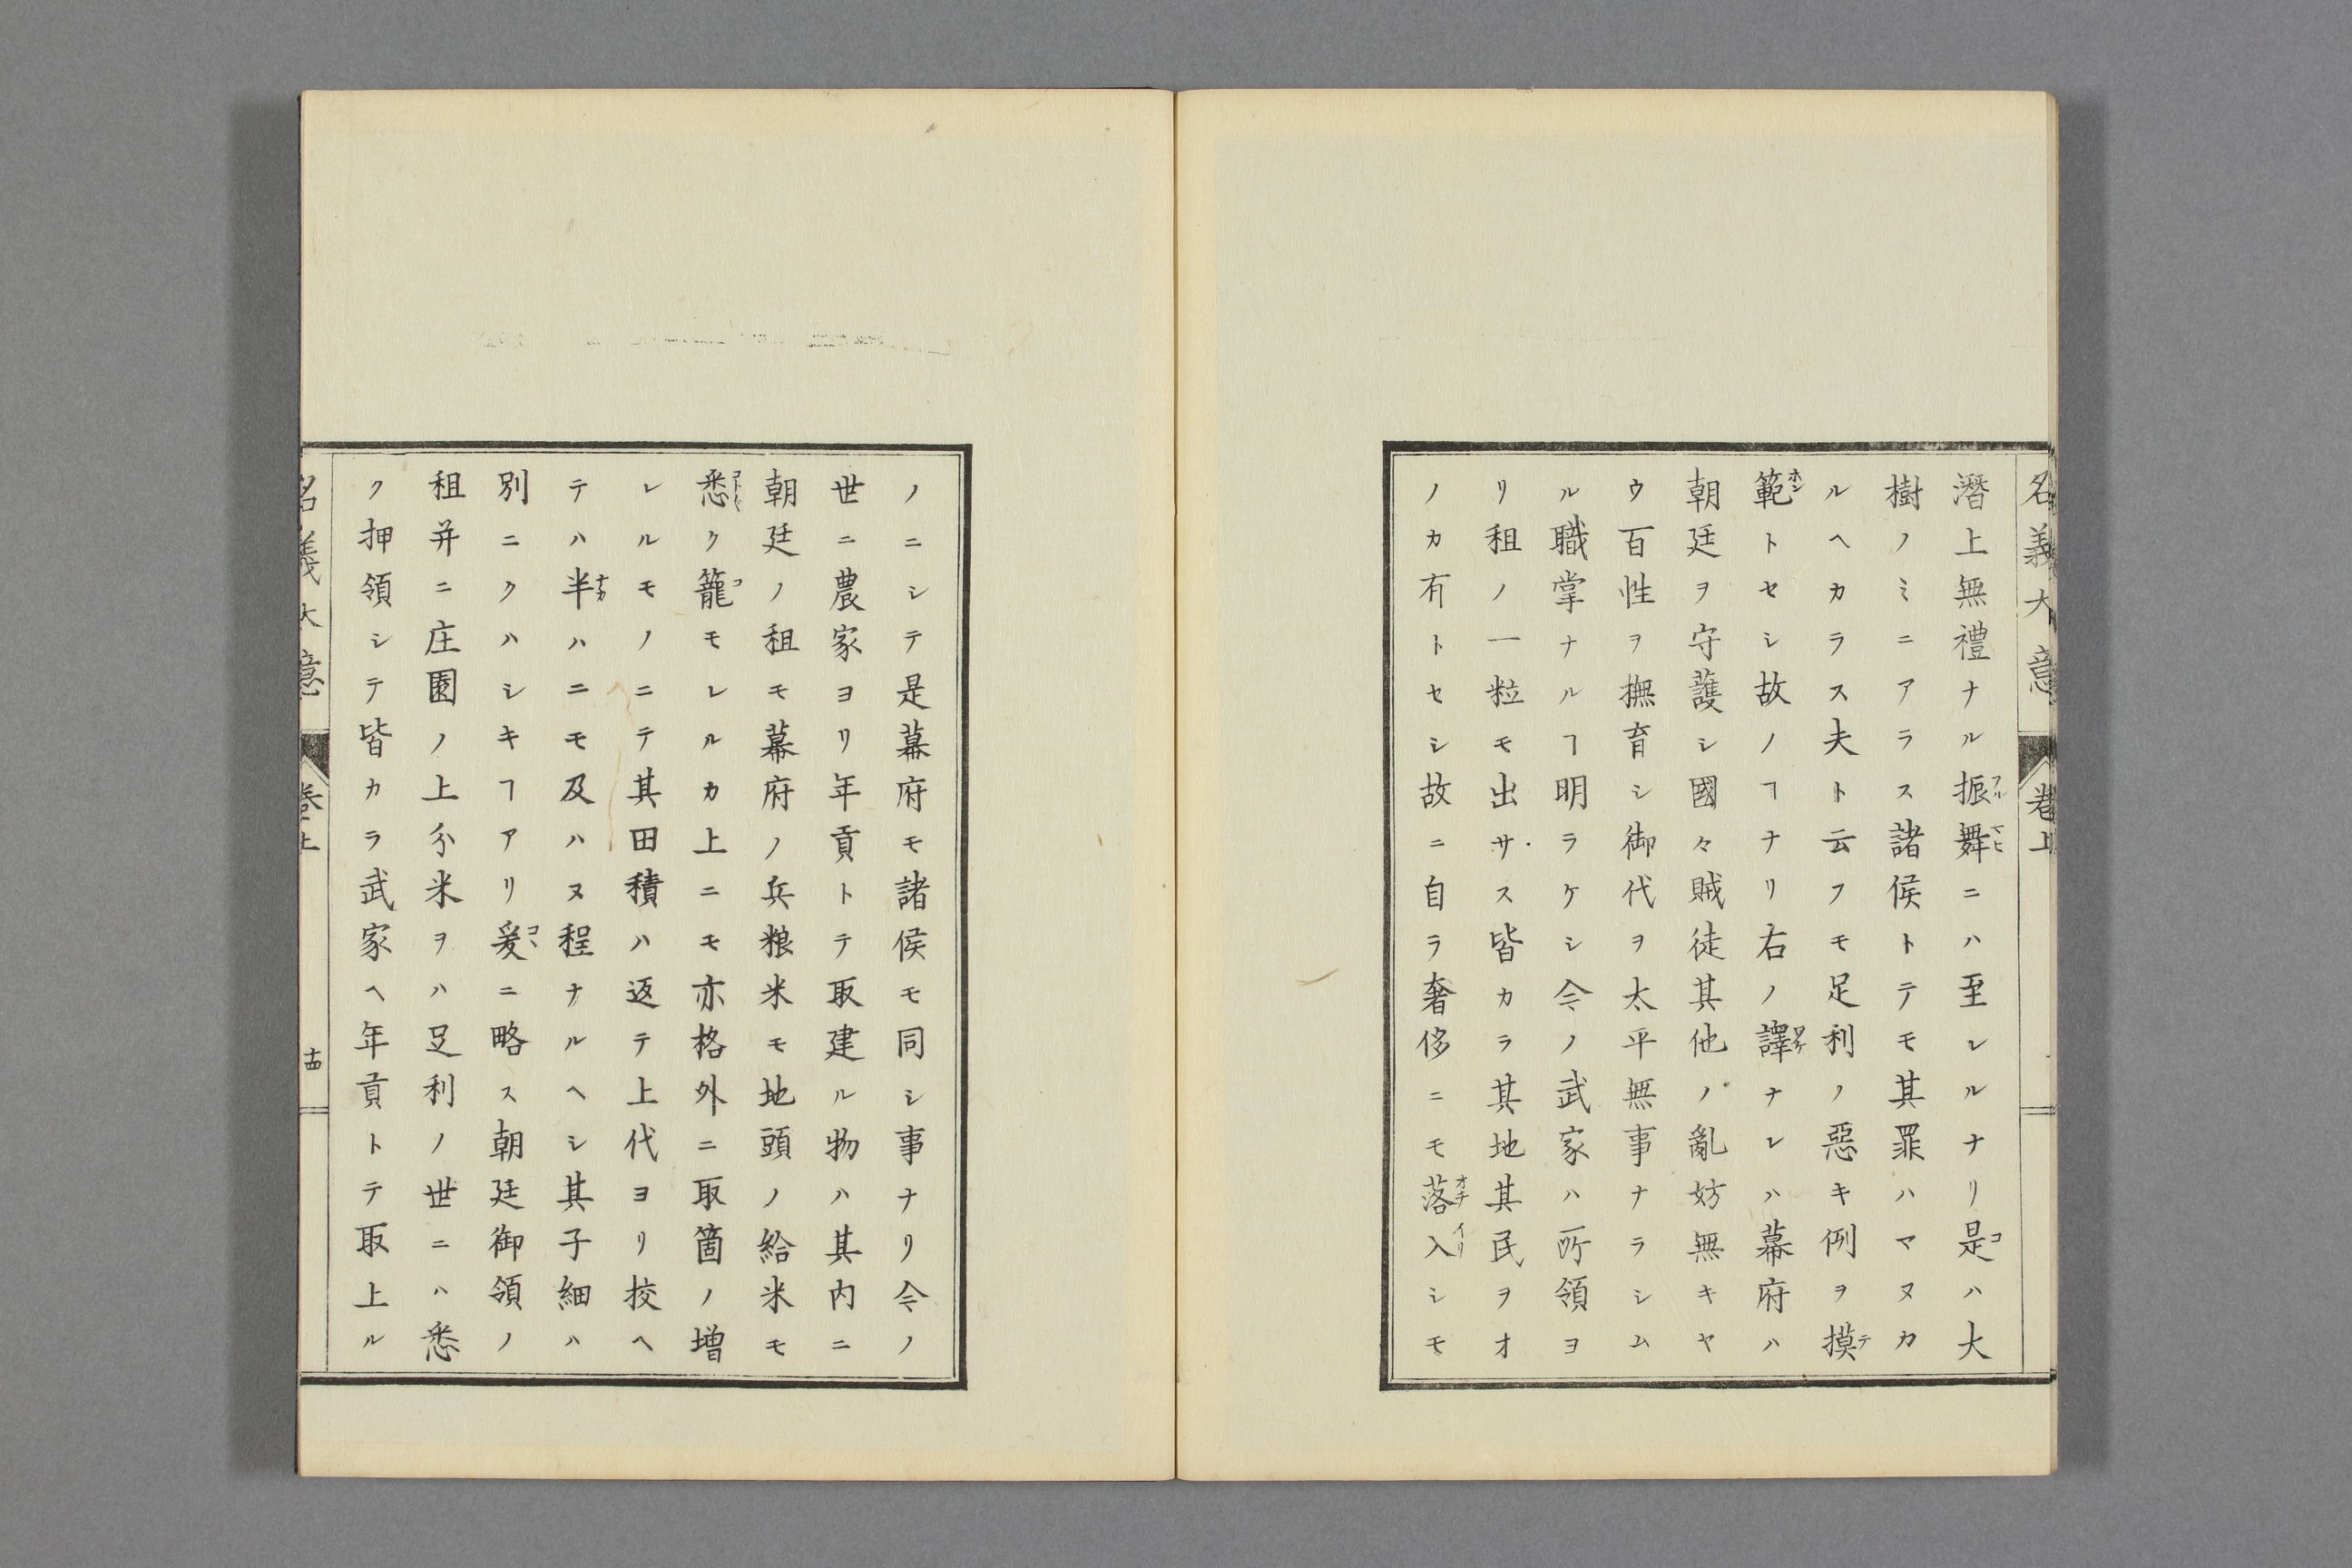 名義大意 卷上
潛上無禮ナル振舞ニハ至レルナリ是ハ大
樹ノミニアラス諸侯トテモ其罪ハマヌカ
ルヘカラス夫ト云フモ足利ノ惡キ例ヲ摸
範トセシ故ノヿナリ右ノ譯ナレハ幕府ハ
朝廷ヲ守護シ國々賊徒其他ノ亂妨無キヤ
ウ百性ヲ撫育シ御代ヲ太平無事ナラシム
ル職掌ナルヿ明ラケシ今ノ武家ハ所領ヨ
リ租ノ一粒モ出サス皆カラ其地其民ヲオ
ノカ有トセシ故ニ自ラ奢侈ニモ落入シモ
ノニシテ是幕府モ諸侯モ同シ事ナリ今ノ
世ニ農家ヨリ年貢トテ取建ル物ハ其内ニ
朝廷ノ租モ幕府ノ兵粮米モ地頭ノ給米モ
悉ク籠モレルカ上ニモ亦格外ニ取箇ノ増
レルモノニテ其田積ハ返テ上代ヨリ挍ヘ
テハ半ハニモ及ハヌ程ナルヘシ其子細ハ
別ニクハシキヿアリ爰ニ略ス朝廷御領ノ
租并ニ庄園ノ上分米ヲハ足利ノ世ニハ悉
ク押領シテ皆カラ武家ヘ年貢トテ取上ル
名義大意 卷上 十四